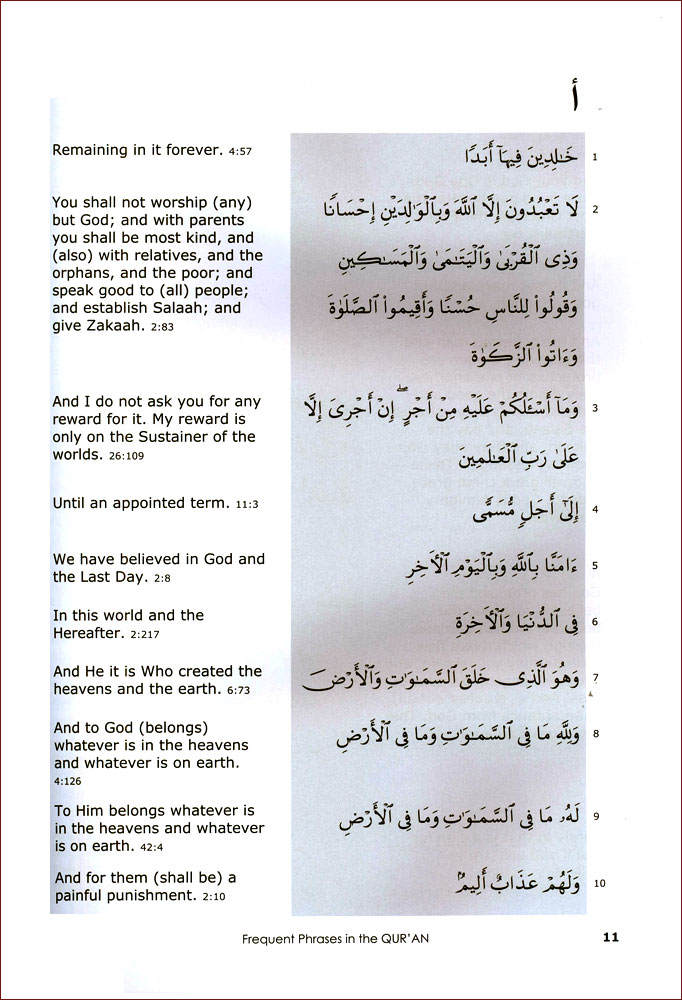 أ
Remaining in it forever. 4:57
خَـٰلِدِينَ فِيهَآ أَبَدًا
1
You shall not worship (any)
but God; and with parents
you shall be most kind, and
(also) with relatives, and the
orphans, and the poor; and
speak good to (all) people;
and establish Salaah; and
give Zakaah. 2:83
لَا تَعْبُدُونَ إِلَّا ٱللَّهَ وَبِٱلْوَٰلِدَيْنِ إِحْسَانًا
وَذِى ٱلْقُرْبَىٰ وَٱلْيَتَـٰمَىٰ وَٱلْمَسَـٰكِينِ
وَقُولُوا۟ لِلنَّاسِ حُسْنًا وَأَقِيمُوا۟ ٱلصَّلَوٰةَ
وَءَاتُوا۟ ٱلزَّكَوٰةَ
2
And I do not ask you for any
reward for it. My reward is
only on the Sustainer of the
worlds. 26:109
وَمَآ أَسْـَٔلُكُمْ عَلَيْهِ مِنْ أَجْرٍ ۖ إِنْ أَجْرِىَ إِلَّا
عَلَىٰ رَبِّ ٱلْعَـٰلَمِينَ
3
Until an appointed term. 11:3
إِلَىٰٓ أَجَلٍ مُّسَمًّى
4
We have believed in God and
the Last Day. 2:8
ءَامَنَّا بِٱللَّهِ وَبِٱلْيَوْمِ ٱلْـَٔاخِرِ
5
In this world and the
Hereafter. 2:217
فِى ٱلدُّنْيَا وَٱلْـَٔاخِرَةِ
6
And He it is Who created the
heavens and the earth. 6:73
وَهُوَ ٱلَّذِى خَلَقَ ٱلسَّمَـٰوَٰتِ وَٱلْأَرْضَ
7
And to God (belongs)
whatever is in the heavens
and whatever is on earth.
4:126
وَلِلَّهِ مَا فِى ٱلسَّمَـٰوَٰتِ وَمَا فِى ٱلْأَرْضِ
8
To Him belongs whatever is
in the heavens and whatever
is on earth. 42:4
لَهُۥ مَا فِى ٱلسَّمَـٰوَٰتِ وَمَا فِى ٱلْأَرْضِ
9
And for them (shall be) a
painful punishment. 2:10
وَلَهُمْ عَذَابٌ أَلِيمٌۢ
10
Frequent Phrases in the QUR'AN 11